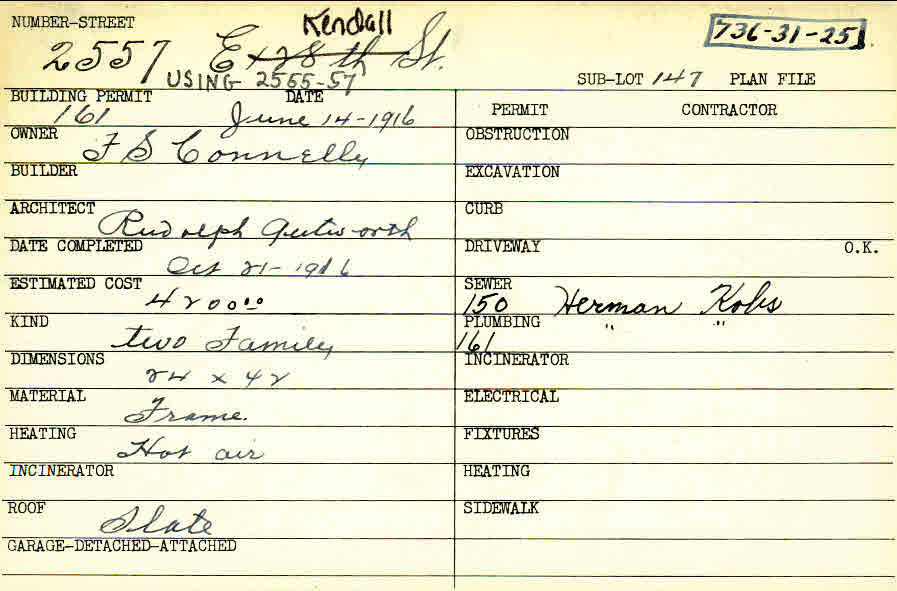 NUMBER-STREET
Kendall
2557 E 128th St.
736-31-25
USING 2555-57
SUB-LOT 147 PLAN FILE
BUILDING PERMIT DATE
161 June 14-1916
PERMIT CONTRACTOR
OWNER
F S Connelly
OBSTRUCTION
BUILDER
EXCAVATION
ARCHITECT
Rudolph
CURB
DATE COMPLETED
Oct 21-1916
DRIVEWAY O.K.
ESTIMATED COST
4200.00
SEWER
150 Herman Kobs
KIND
two Family
PLUMBING " "
161
DIMENSIONS
24 x 42
INCINERATOR
MATERIAL
Frame.
ELECTRICAL
HEATING
Hot air
FIXTURES
INCINERATOR
HEATING
ROOF
Slate
SIDEWALK
GARAGE-DETACHED-ATTACHED